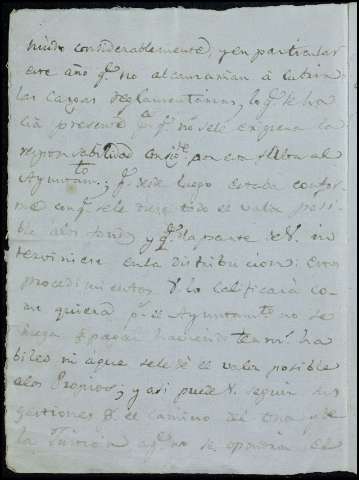 nuido considerablemente y en particular
este año qe no alcanzarian á cubrir
las cargas reglamentarias, lo qe le ha
cia presente pa qe no se le exigiera la
responsabilidad por esa falta al
Ayuntamto; qe desde luego estaba confor
me con qe se le diese todo el valor posi
ble a los fondos y qe la parte de V. in
terviniese en la distribucion: Estos
procedimientos V. lo calificará co
mo quiera pr el Ayuntamto no se
niega pagar haciendo
ni á que se le dé el valor posible
a los Propios; y asi puede V. seguir sus
gestiones el camino del
la qe no se opondra el